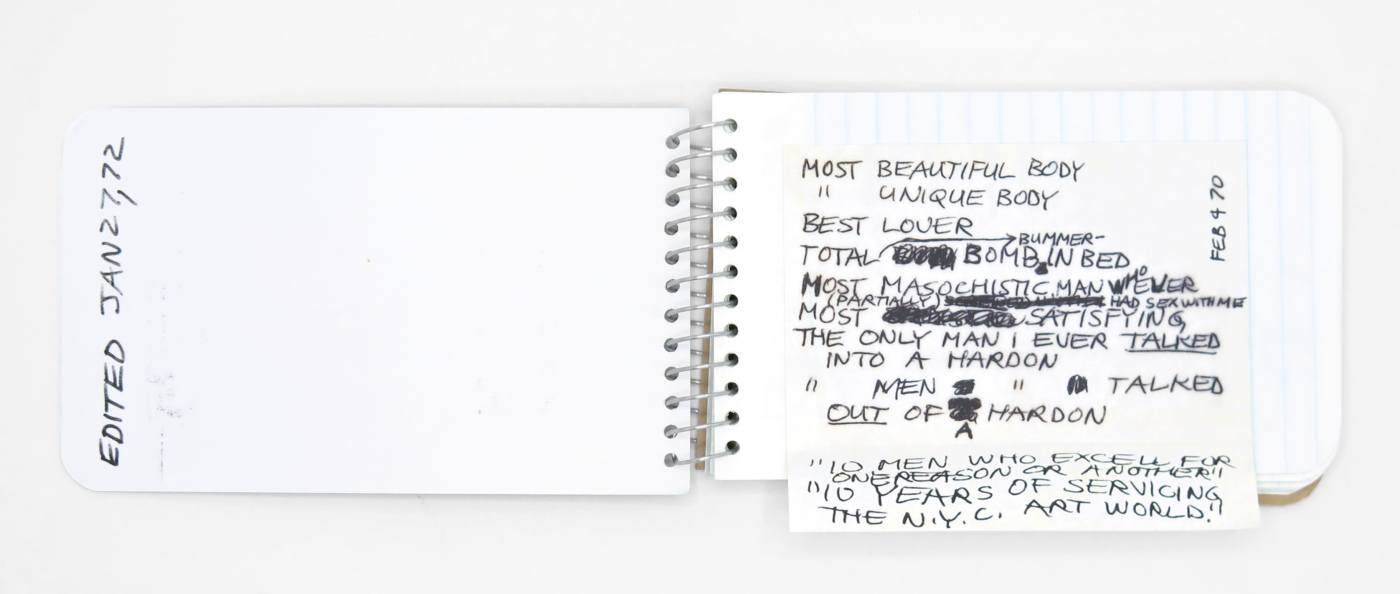 EDITED JAN 27, 72
FEB 4 70
MOST BEAUTIFUL BODY
" UNIQUE BODY
BEST LOVER
BUMMER-
TOTAL BOMB IN BED
MOST MASOCHISTIC MAN WHO EVER
(PARTIALLY) HAD SEX WITH ME
MOST SATISFYING
THE ONLY MAN I EVER TALKED
INTO A HARDON
" MEN " TALKED
OUT OF HARDON
A
"10 MEN WHO EXCELL FOR
ONE REASON OR ANOTHER"
"10 YEARS OF SERVICING
THE N.Y.C. ART WORLD."